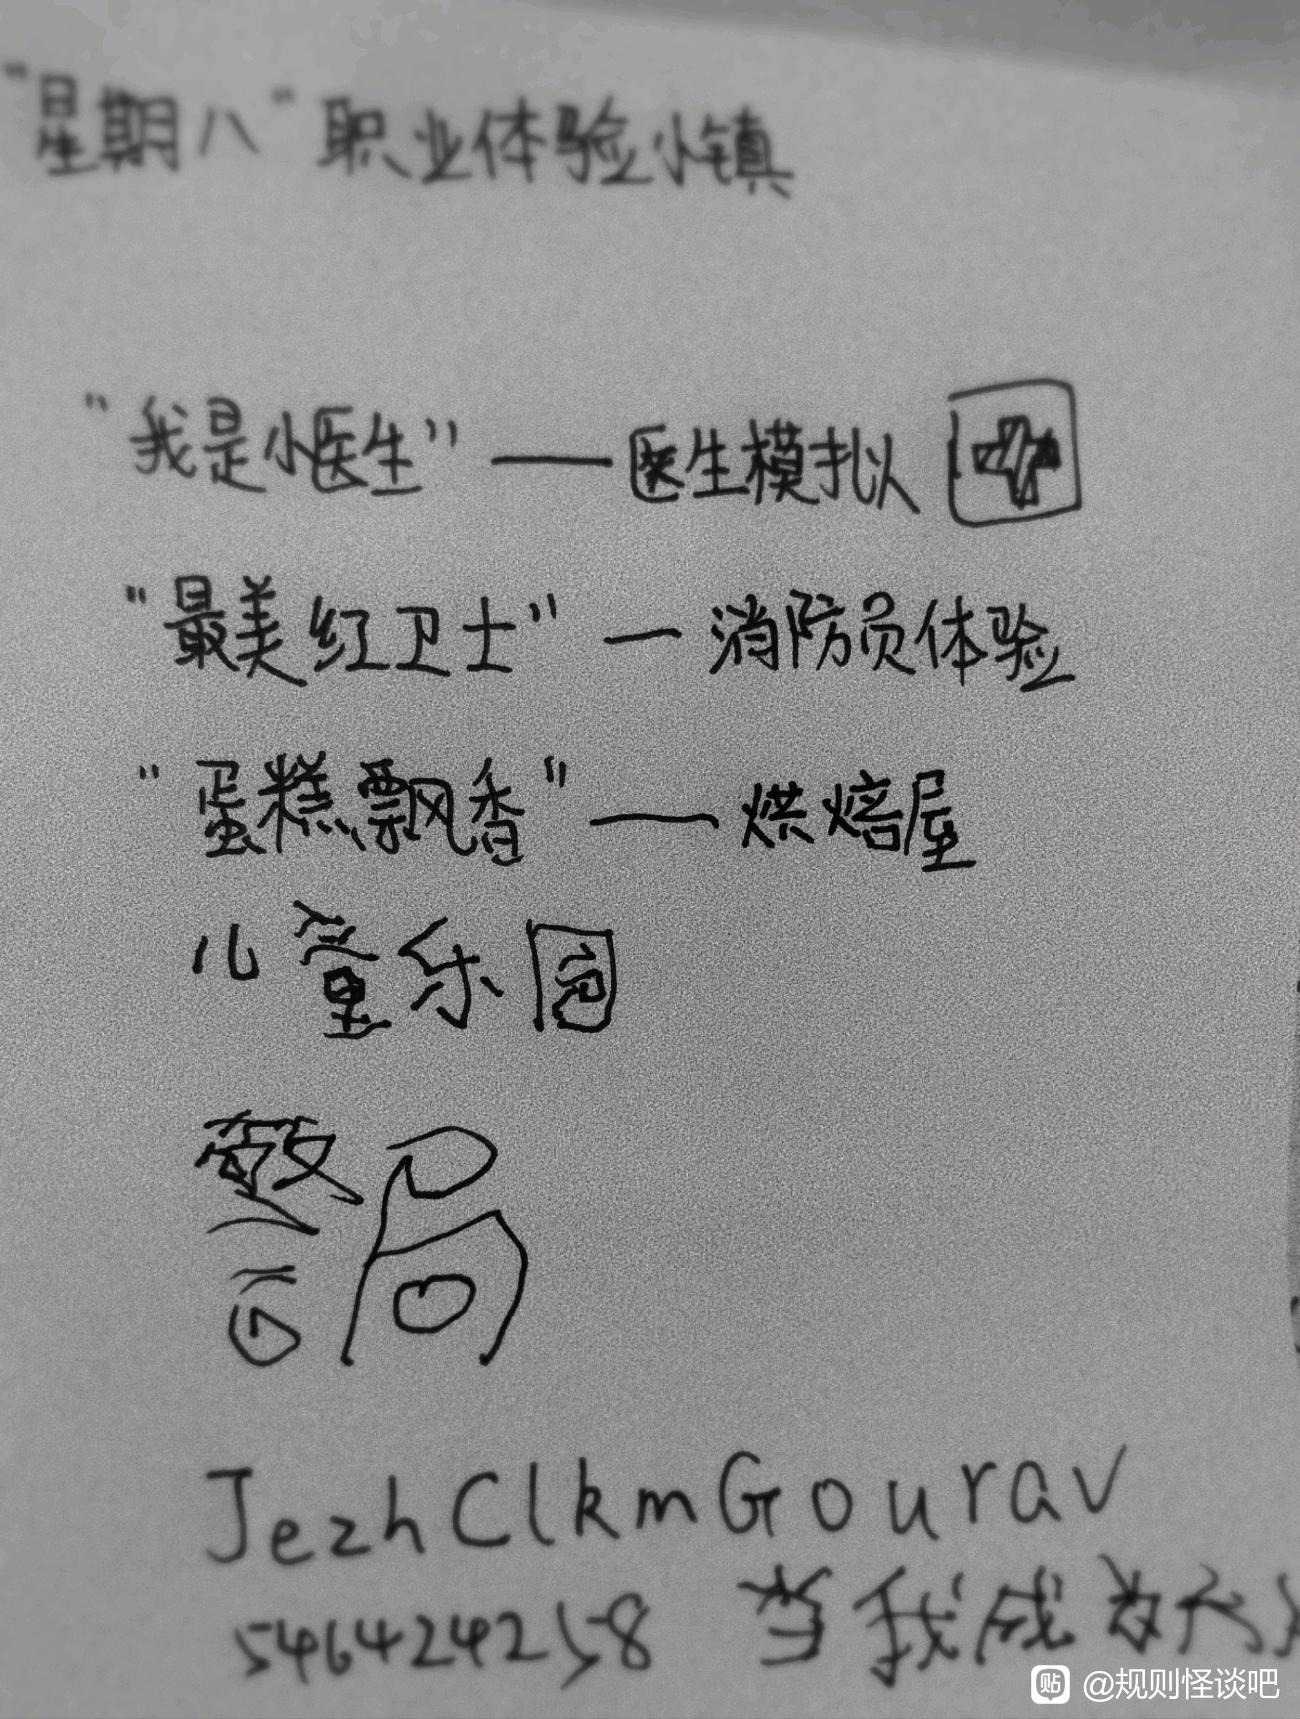 "星期八"职业体验小镇
"我是小医生"——医生模拟
"最美红卫士"—消防员体验
"蛋糕飘香"——烘焙屋
儿童乐园
警局
JezhClkmGourav
546424258 当我成为
@规则怪谈吧